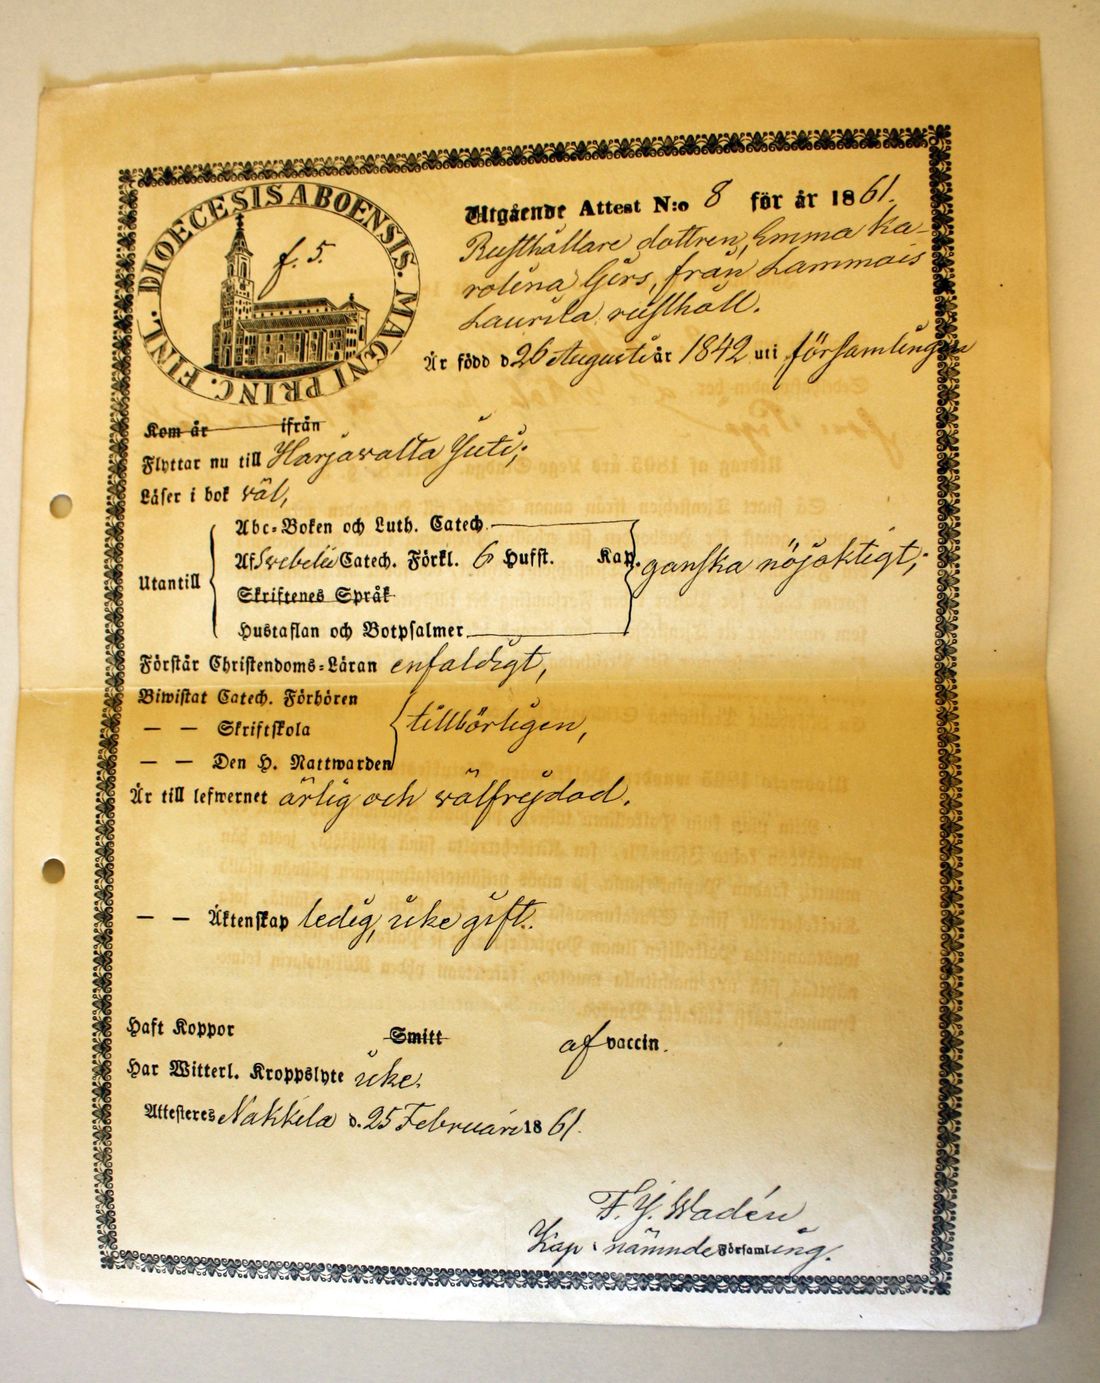 DIOECESIS ABOENSIS. MAGNI PRINC. FINL.
f. 5.
Utgående Attest N:o 8 för år 1861.
Rusthållare dottren, Emma Ka-
rolina Girs, från Lammais
Laurila rusthåll.
Är född d. 26 Augusti år 1842 uti församlingen
Kom år ifrån
Flyttar nu till Harjavalta
Läser i bok väl,
Utantill
Abc-Boken och Luth. Catech.
Af Svebelii Catech. Förkl. 6 Hufst. Kap. ganska nöjaktigt,
Skriftenes Språk
Hustaflan och Botpsalmer
Förstår Christendoms-Läran enfaldigt,
Biwistat Catech. Förhören
— — Skriftskola tillbörligen,
— — Den H. Nattwarden
Är till lefwernet ärlig och välfrejdad.
— — Äktenskap ledig, icke gift.
Haft Koppor Smitt af vaccin.
Har Witterl. Kroppslyte icke.
Attesteres Nakkila d. 25 Februari 1861.
Wadén
Kap. nämnde Församling.